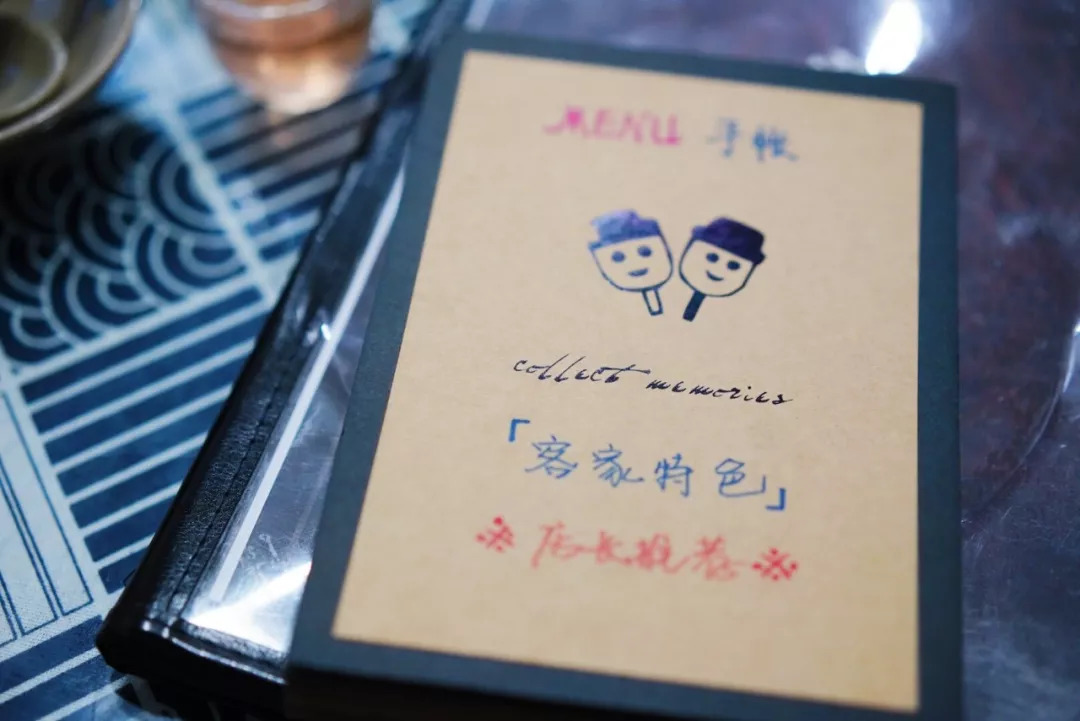 MENU 手帐
collect memories
「客家特色」
※店长推荐※